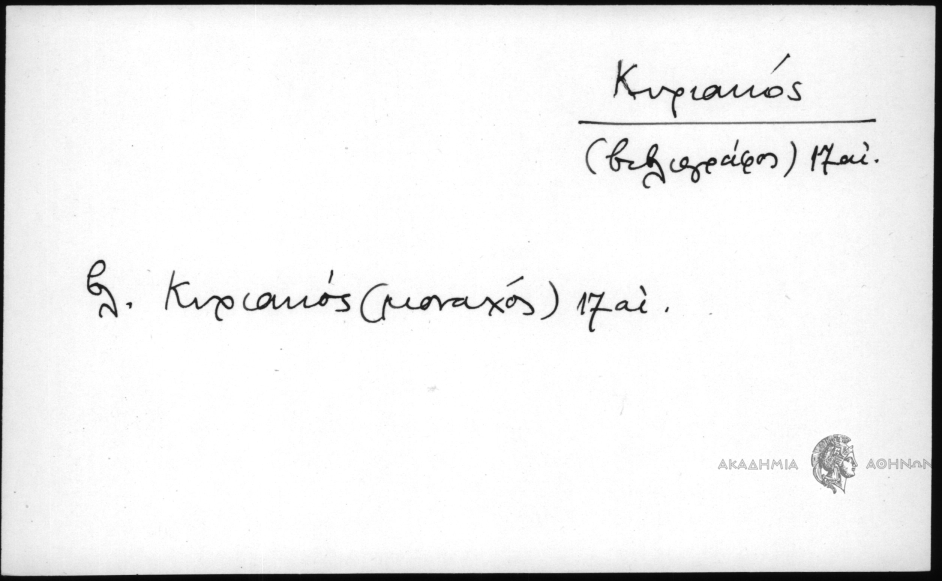 Κυριακός
(βιβλιογράφος) 17 αἰ.
βλ. Κυριακός (μοναχός) 17 αἰ.
ΑΚΑΔΗΜΙΑ ΑΘΗΝΩΝ